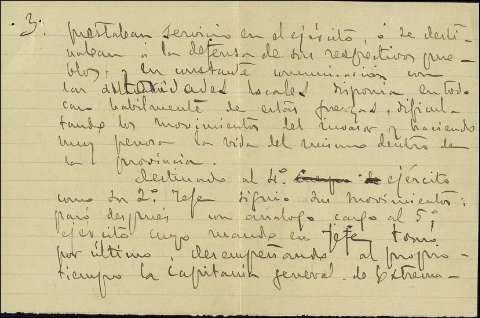 .3. prestaban servicio en el ejército, ó se desti-
naban á la defensa de sus respectivos pue-
blos, y en constante comunicación con
las autoridades locales disponia en todo
caso habilmente de estas fuerzas, dificul-
tando los movimientos del invasor y haciendo
muy penosa la vida del mismo dentro de
la provincia.
Destinado al 4º. Cuerpo de ejército
como su 2º. Jefe siguió sus movimientos;
pasó después con análogo cargo al 5º;
ejército cuyo mando en Jefe tomó
por último desempeñando al propio
tiempo la Capitania general de Extrema-